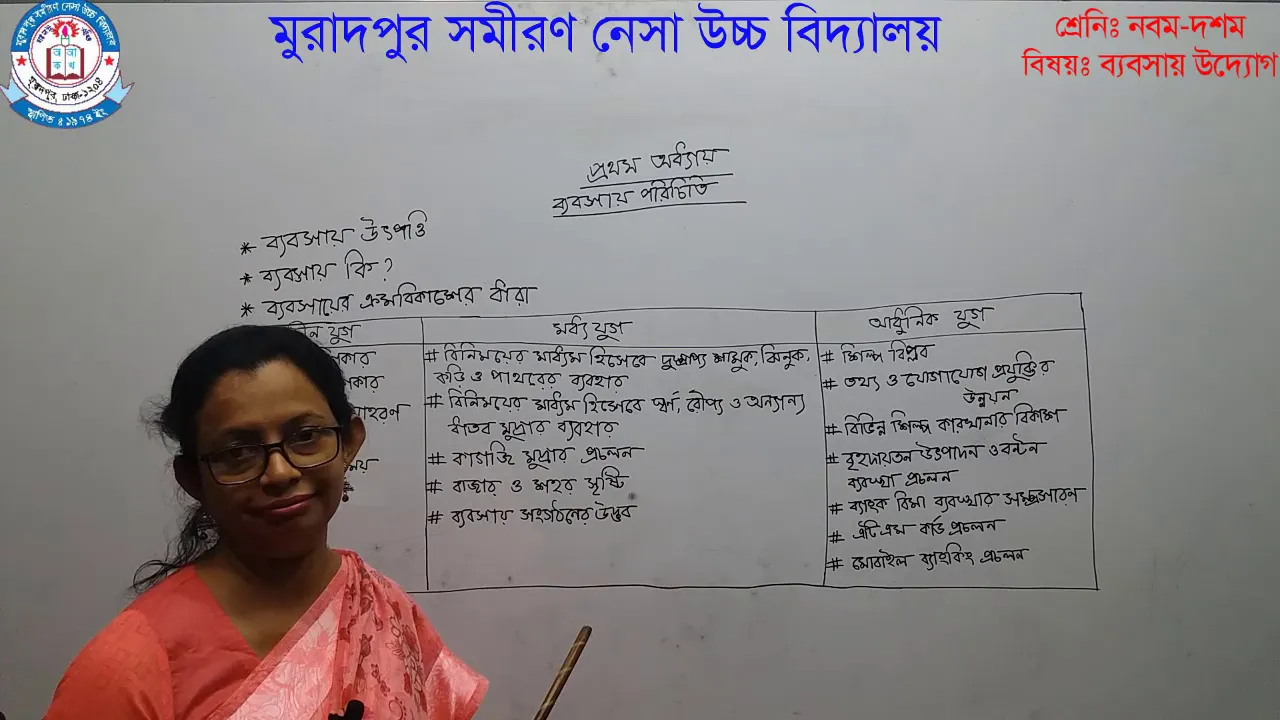 মুরাদপুর সমীরণ নেসা উচ্চ বিদ্যালয়
শ্রেনিঃ নবম-দশম
বিষয়ঃ ব্যবসায় উদ্যোগ
মুরাদপুর সমীরণ নেসা উচ্চ বিদ্যালয়
অ আ
ক খ
মুরাদপুর, ঢাকা-১২০৪
স্থাপিত ঃ ১৯৭৪ ইং
প্রথম অধ্যায়
ব্যবসায় পরিচিতি
* ব্যবসায় উৎপত্তি
* ব্যবসায় কি?
* ব্যবসায়ের ক্রমবিকাশের ধারা
যুগ
মধ্য যুগ
# বিনিময়ের মাধ্যম হিসেবে দুষ্প্রাপ্য শামুক, ঝিনুক,
কড়ি ও পাথরের ব্যবহার
# বিনিময়ের মাধ্যম হিসেবে স্বর্ণ, রৌপ্য ও অন্যান্য
ধাতব মুদ্রার ব্যবহার
# কাগজি মুদ্রার প্রচলন
# বাজার ও শহর সৃষ্টি
# ব্যবসায় সংগঠনের উদ্ভব
আধুনিক যুগ
# শিল্প বিপ্লব
# তথ্য ও যোগাযোগ প্রযুক্তির
উন্নয়ন
# বিভিন্ন শিল্প কারখানার বিকাশ
# বৃহদায়তন উৎপাদন ও বন্টন
ব্যবস্থা প্রচলন
# ব্যাংক বিমা ব্যবস্থার সম্প্রসারন
# এটিএম কার্ড প্রচলন
# মোবাইল ব্যাংকিং প্রচলন